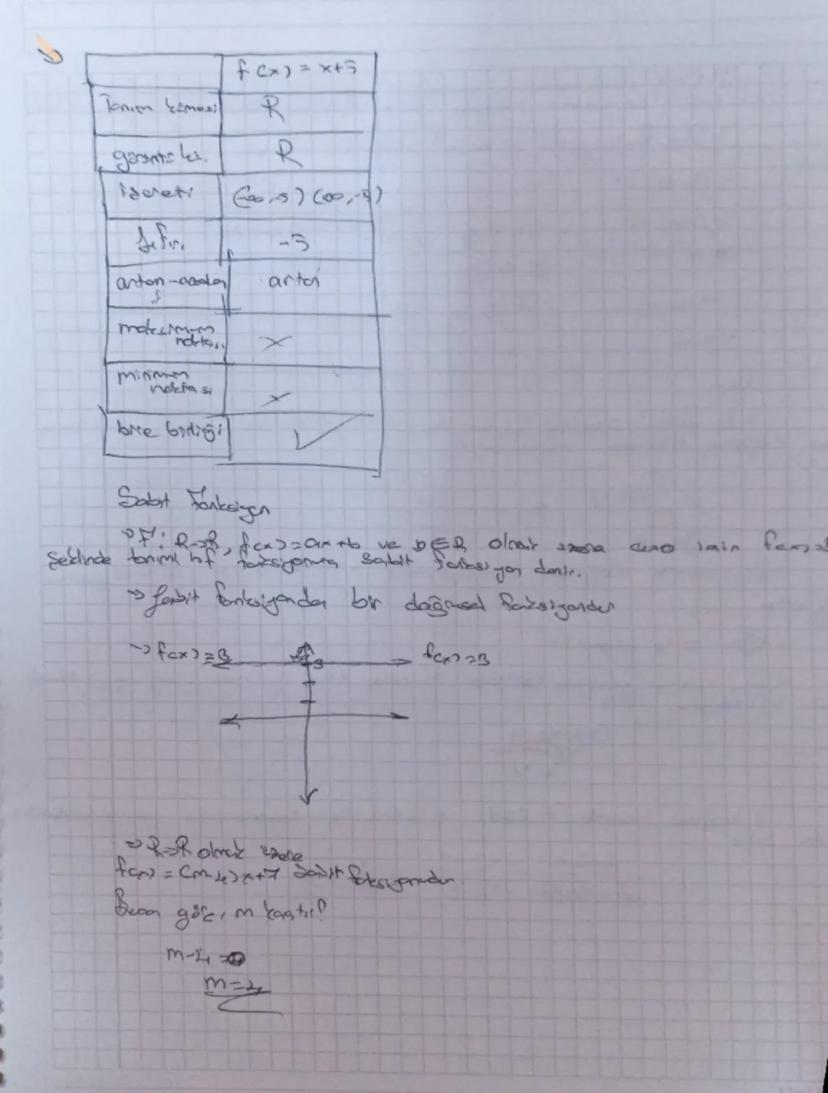 f(x) = x+5
Tanım kümesi R
görüntü kü. R
işareti (-∞,-5) (∞,-5)
-5
artan-azalan artan
maksimum noktası x
minimum noktası x
bire birliği ✓
Sabit Fonksiyon
→ F: R→R, f(x)=ax+b ve b∈R olmak üzere için
şeklinde fonksiyona sabit fonksiyon denir.
→ Sabit fonksiyonda bir doğrusal fonksiyondur
→ f(x)=3 3 f(x)=3
→ R→R olmak üzere
f(x)=(m-4)x+7 sabit fonksiyondur
Buna göre, m kaçtır?
m-4=0
m=4